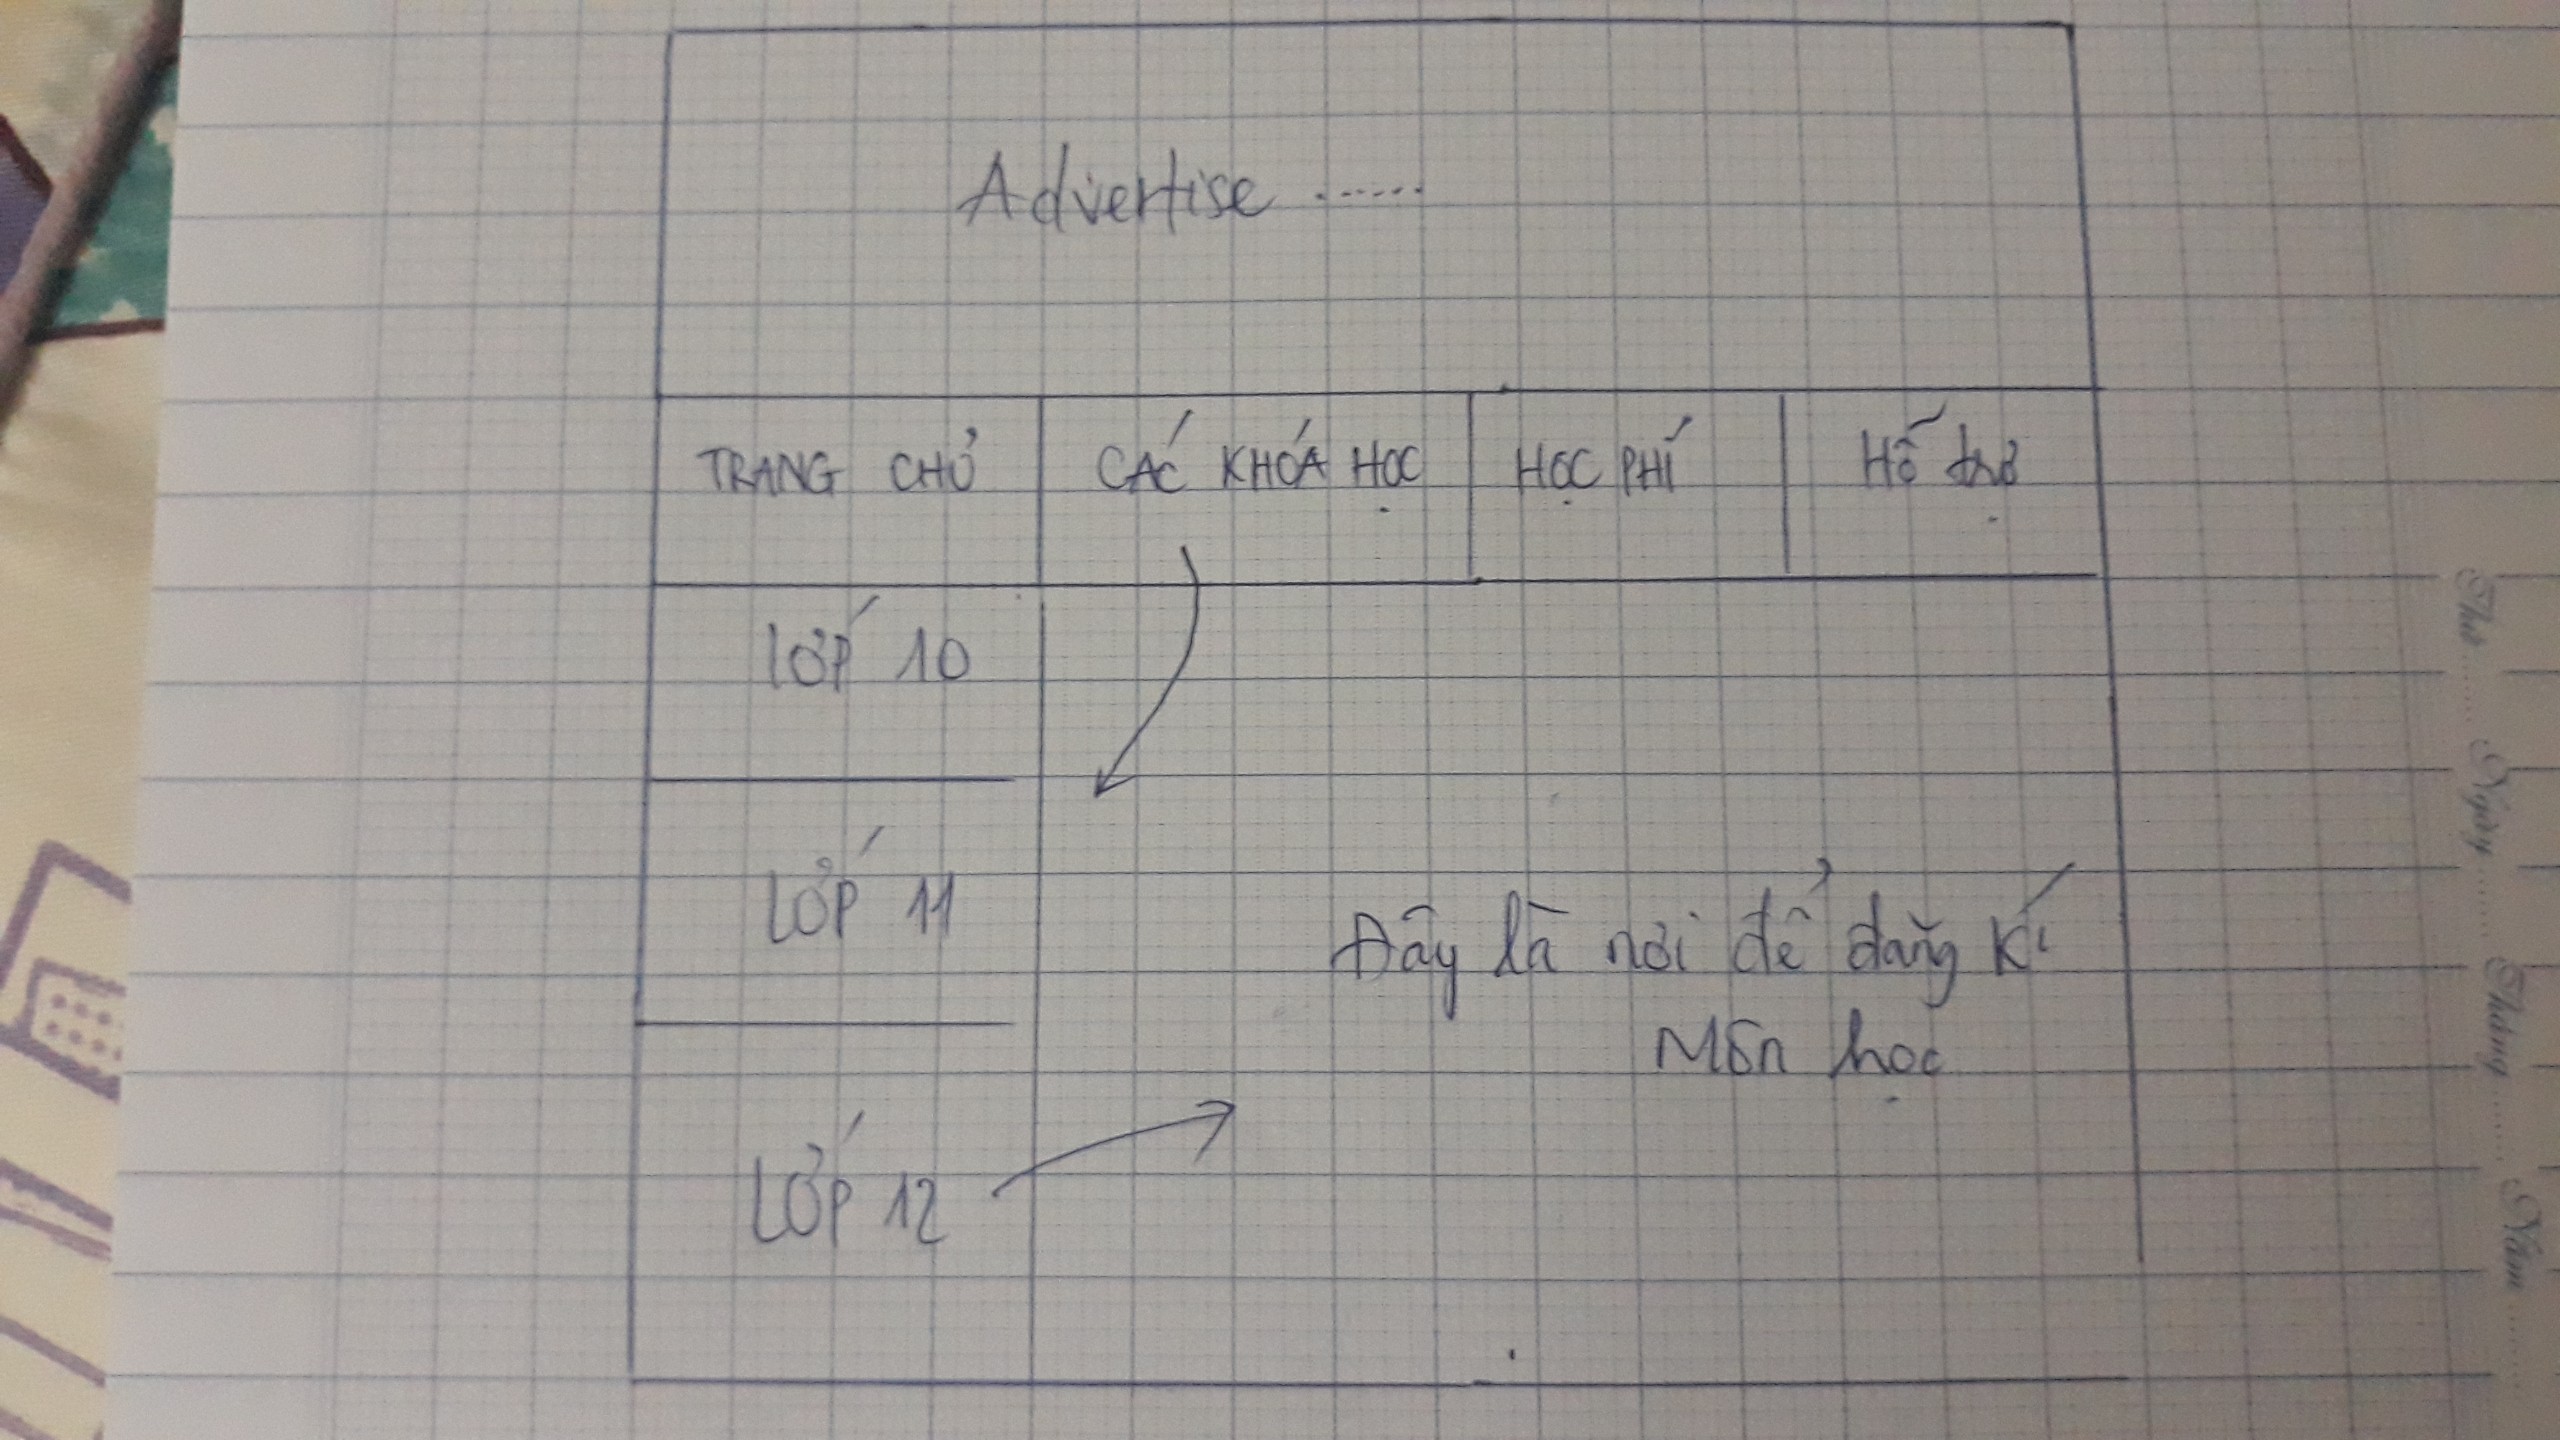 Advertise ......
TRANG CHỦ CÁC KHÓA HỌC HỌC PHÍ Hỗ trợ
LỚP 10
LỚP 11
Đây là nơi để đăng kí
Môn học
LỚP 12
Thứ ........ Ngày ........ Tháng ........ Năm ........